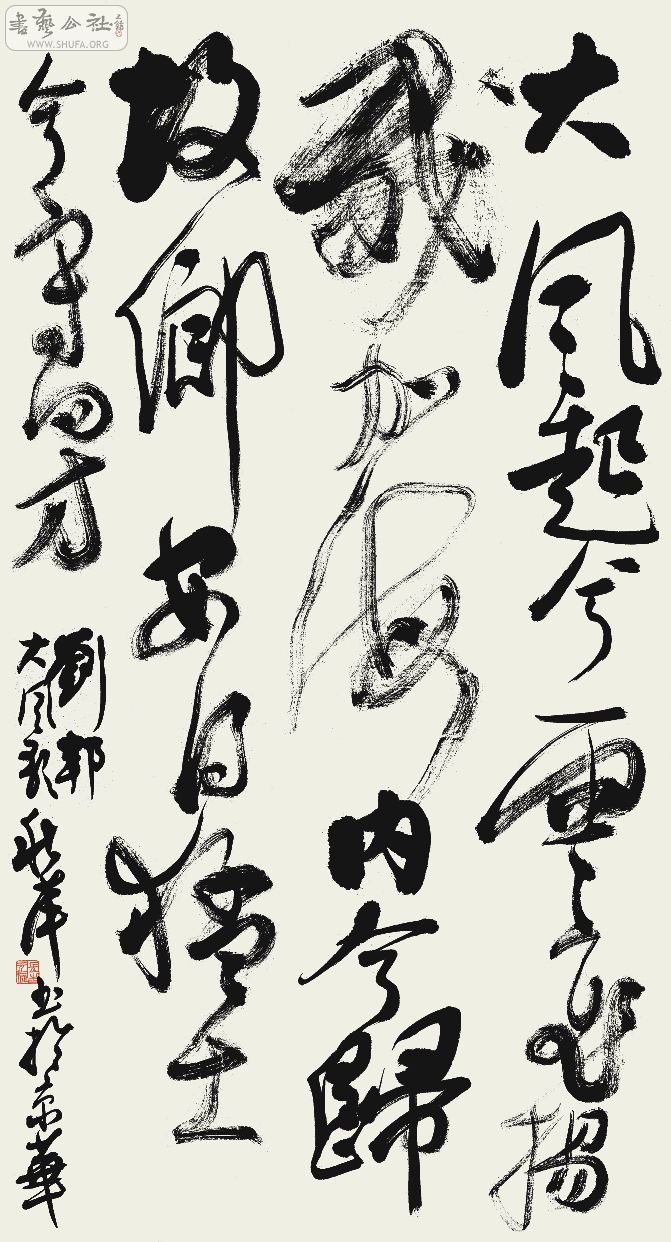 書藝公社
WWW.SHUFA.ORG
大風起兮雲飛揚
威加海内兮歸
故鄉安得猛士
兮守四方
劉邦
大風歌
书於京華